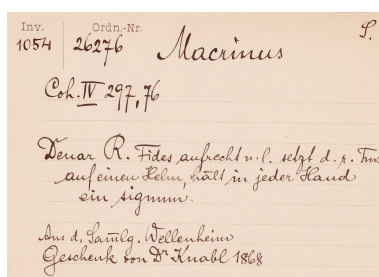 Inv. Ordn.-Nr. S.
1054 26276 Macrinus
Coh. IV 297,76
Denar R. Fides aufrecht n. l. setzt d. r. Fuß
auf einen Helm, hält in jeder Hand
ein signum.
Aus d. Samlg. Wellenheim
Geschenk von Dr Knabl 1868